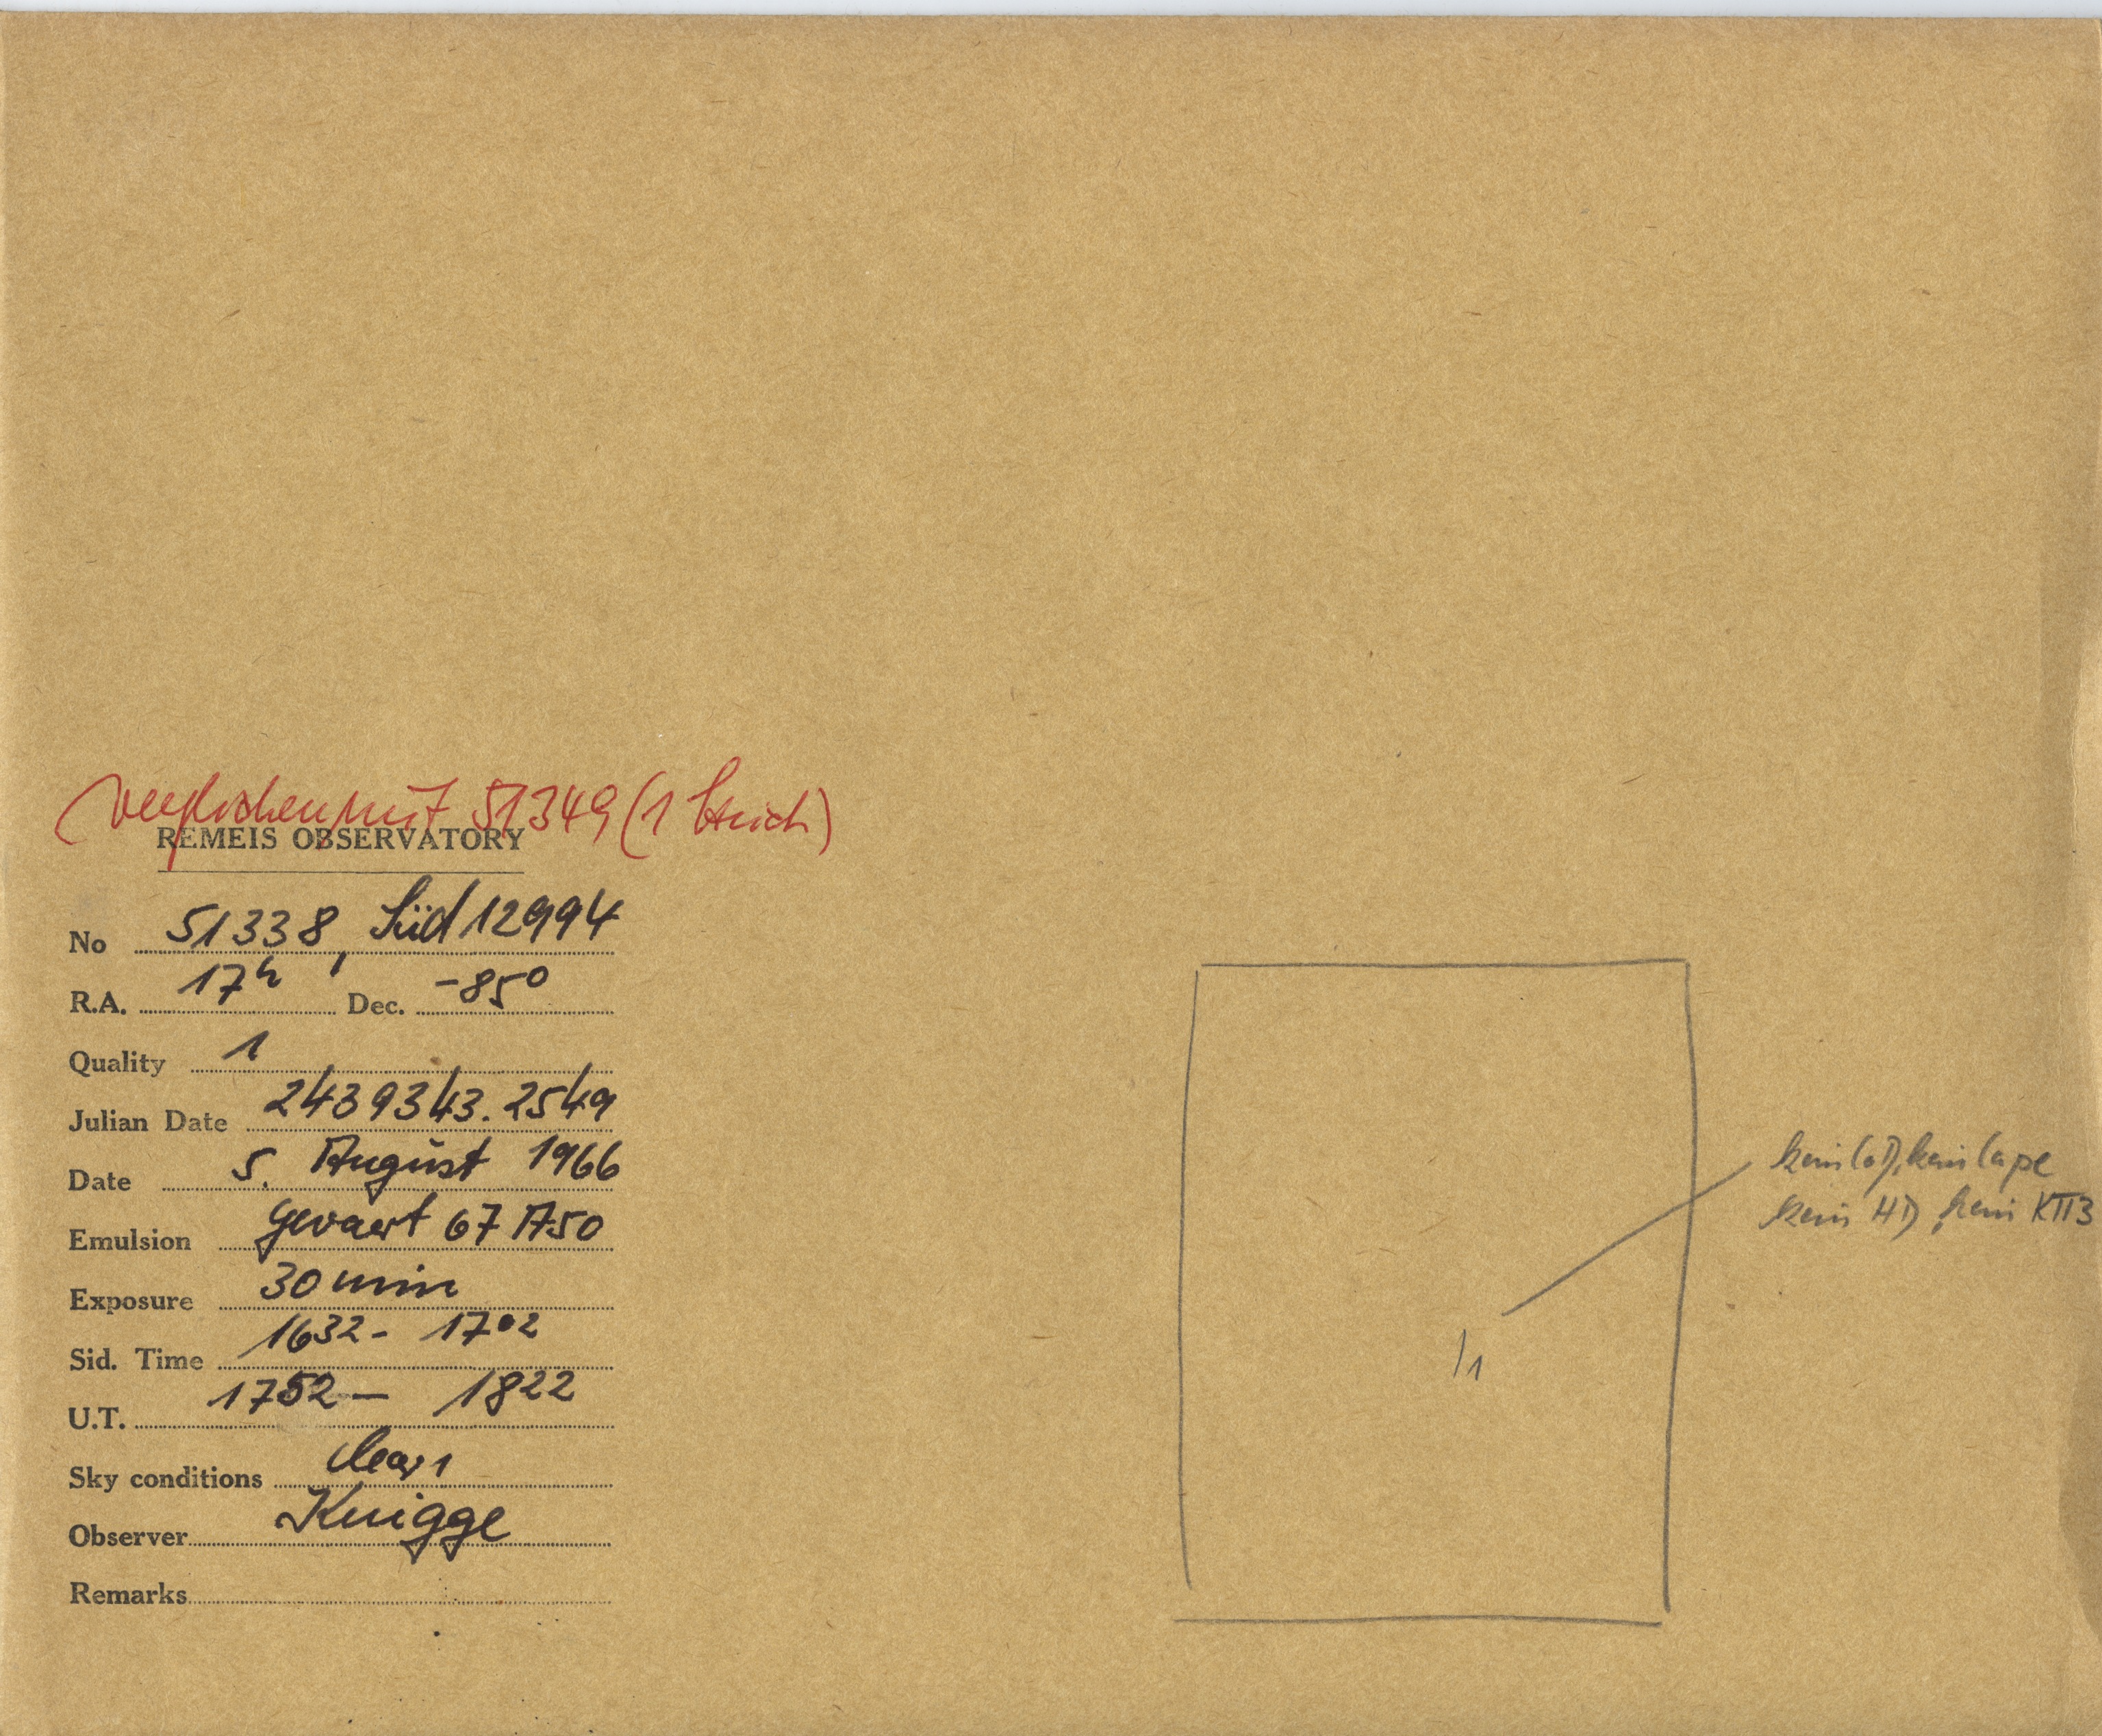 verglichen mit 51349 (1 Strich)
REMEIS OBSERVATORY
No 51338, Süd 12994
R.A. 17h Dec. -85°
Quality 1
Julian Date 2439343.2549
Date 5. August 1966
Emulsion Gevaert 67 A50
Exposure 30 min
Sid. Time 1632 - 1702
U.T. 1752 - 1822
Sky conditions clear 1
Observer Knigge
Remarks
kein CoD, kein Cape
kein HD, kein KΠ3
1